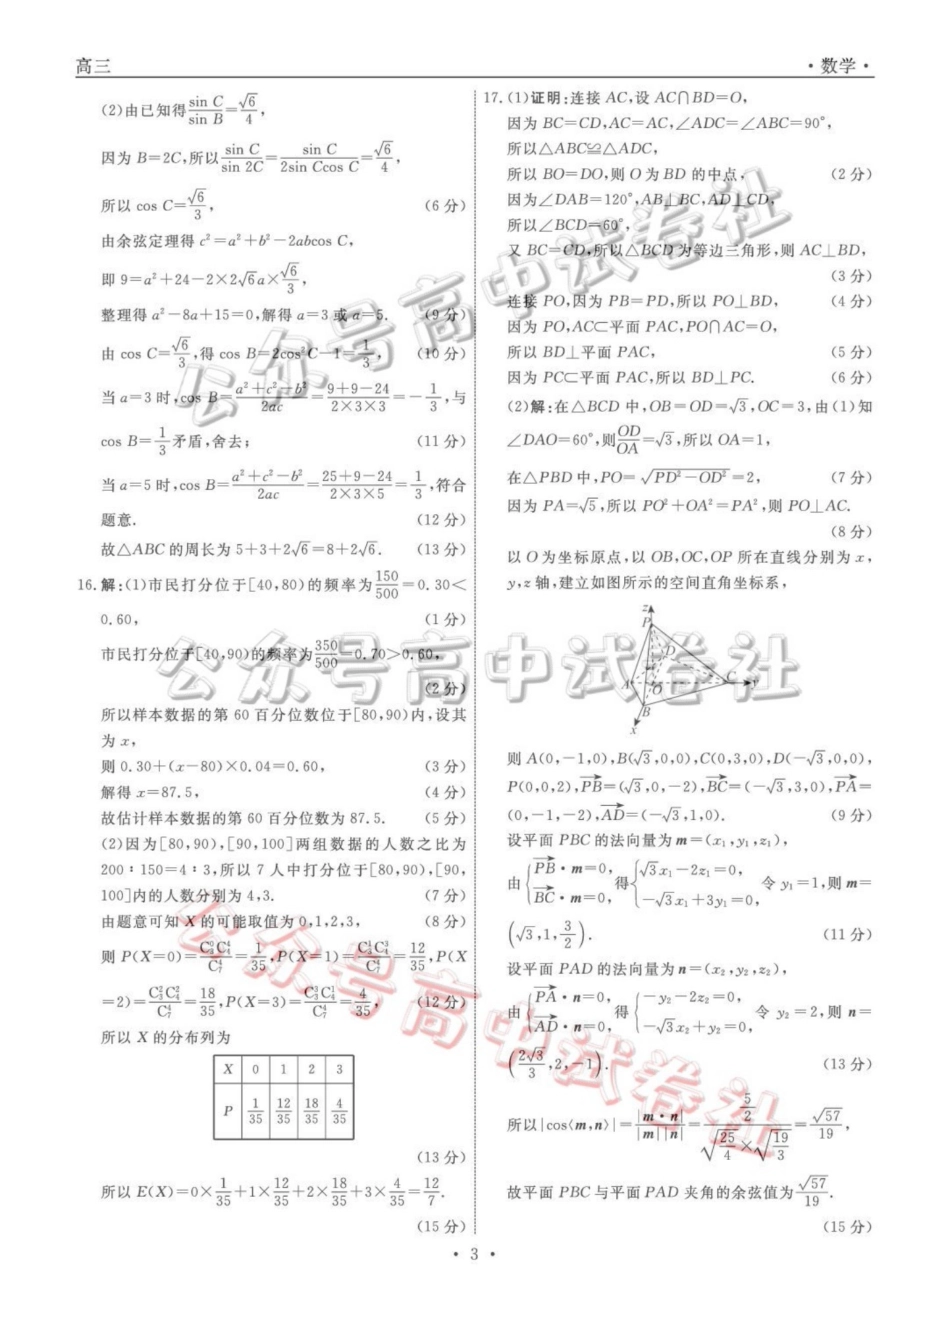 高三
·数学·
(2)由已知得sin C/sin B=√6/4,
因为 B=2C,所以sin C/sin 2C=sin C/2sin Ccos C=√6/4,
所以 cos C=√6/3, (6 分)
由余弦定理得 c²=a²+b²-2abcos C,
即 9=a²+24-2×2√6a×√6/3,
整理得 a²-8a+15=0,解得 a=3 或 a=5. (9 分)
由 cos C=√6/3,得 cos B=2cos²C-1=1/3, (10 分)
当 a=3 时,cos B=a²+c²-b²/2ac=9+9-24/2×3×3=-1/3,与
cos B=1/3矛盾,舍去; (11 分)
当 a=5 时,cos B=a²+c²-b²/2ac=25+9-24/2×3×5=1/3,符合
题意. (12 分)
故△ABC 的周长为 5+3+2√6=8+2√6. (13 分)
16.解:(1)市民打分位于[40,80)的频率为150/500=0.30<
0.60, (1 分)
市民打分位于[40,90)的频率为350/500=0.70>0.60,
(2 分)
所以样本数据的第 60 百分位数位于[80,90)内,设其
为 x,
则 0.30+(x-80)×0.04=0.60, (3 分)
解得 x=87.5, (4 分)
故估计样本数据的第 60 百分位数为 87.5. (5 分)
(2)因为[80,90),[90,100]两组数据的人数之比为
200∶150=4∶3,所以 7 人中打分位于[80,90),[90,
100]内的人数分别为 4,3. (7 分)
由题意可知 X 的可能取值为 0,1,2,3, (8 分)
则 P(X=0)=C₃⁰C₄⁴/C₇⁴=1/35,P(X=1)=C₃¹C₄³/C₇⁴=12/35,P(X
=2)=C₃²C₄²/C₇⁴=18/35,P(X=3)=C₃³C₄¹/C₇⁴=4/35, (12 分)
所以 X 的分布列为
X 0 1 2 3
P 1/35 12/35 18/35 4/35
(13 分)
所以 E(X)=0×1/35+1×12/35+2×18/35+3×4/35=12/7.
(15 分)
17.(1)证明:连接 AC,设 AC∩BD=O,
因为 BC=CD,AC=AC,∠ADC=∠ABC=90°,
所以△ABC≌△ADC,
所以 BO=DO,则 O 为 BD 的中点, (2 分)
因为∠DAB=120°,AB⊥BC,AD⊥CD,
所以∠BCD=60°,
又 BC=CD,所以△BCD 为等边三角形,则 AC⊥BD,
(3 分)
连接 PO,因为 PB=PD,所以 PO⊥BD, (4 分)
因为 PO,AC⊂平面 PAC,PO∩AC=O,
所以 BD⊥平面 PAC, (5 分)
因为 PC⊂平面 PAC,所以 BD⊥PC. (6 分)
(2)解:在△BCD 中,OB=OD=√3,OC=3,由(1)知
∠DAO=60°,则OD/OA=√3,所以 OA=1,
在△PBD 中,PO=√(PD²-OD²)=2, (7 分)
因为 PA=√5,所以 PO²+OA²=PA²,则 PO⊥AC.
(8 分)
以 O 为坐标原点,以 OB,OC,OP 所在直线分别为 x,
y,z 轴,建立如图所示的空间直角坐标系,
z
P
D
A
O
C
y
B
x
则 A(0,-1,0),B(√3,0,0),C(0,3,0),D(-√3,0,0),
P(0,0,2),PB=(√3,0,-2),BC=(-√3,3,0),PA=
(0,-1,-2),AD=(-√3,1,0). (9 分)
设平面 PBC 的法向量为 m=(x₁,y₁,z₁),
由{PB·m=0, BC·m=0,得{√3x₁-2z₁=0, -√3x₁+3y₁=0,令 y₁=1,则 m=
(√3,1,3/2). (11 分)
设平面 PAD 的法向量为 n=(x₂,y₂,z₂),
由{PA·n=0, AD·n=0,得{-y₂-2z₂=0, -√3x₂+y₂=0,令 y₂=2,则 n=
(2√3/3,2,-1). (13 分)
所以|cos⟨m,n⟩|=|m·n|/|m||n|=5/2/√(25/4)×√(19/3)=√57/19,
故平面 PBC 与平面 PAD 夹角的余弦值为√57/19.
(15 分)
·3·
公众号高中试卷社
公众号高中试卷社
公众号高中试卷社